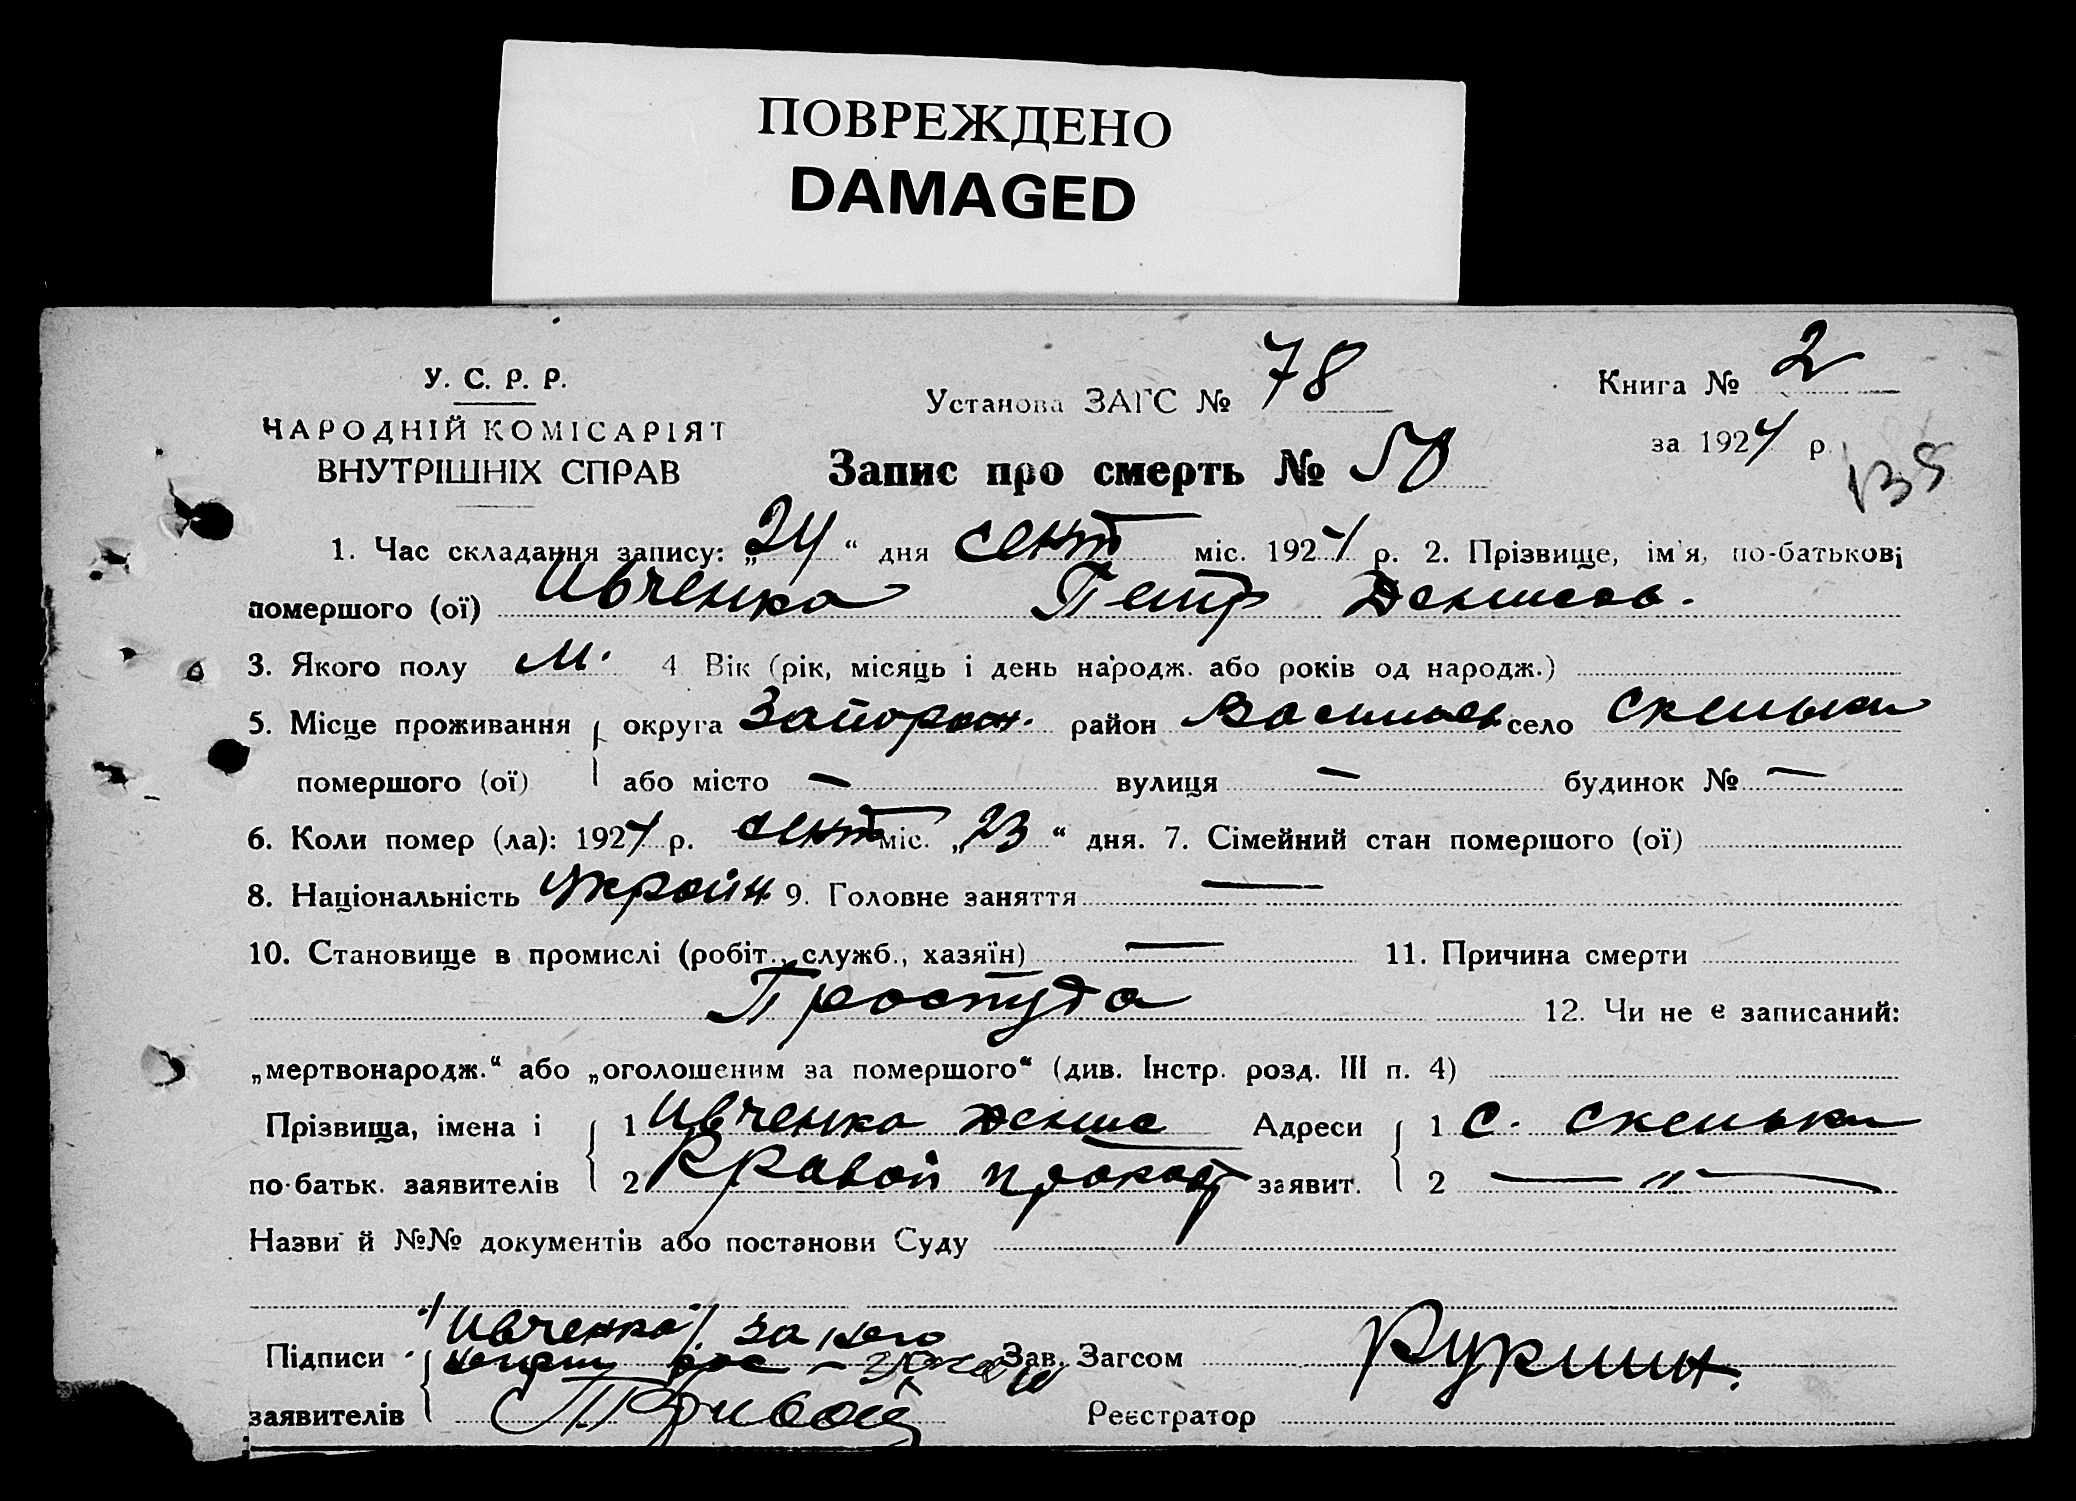 ПОВРЕЖДЕНО
DAMAGED
У. С. Р. Р.
Установа ЗАГС № 78
Книга № 2
НАРОДНІЙ КОМІСАРІЯТ
за 1924 р.
ВНУТРІШНІХ СПРАВ
Запис про смерть №
135
1. Час складання запису: „24“ дня сент міс. 1924 р. 2. Прізвище, ім'я, по-батькові
помершого (ої) Ивченко Петр Денисов.
3. Якого полу м. 4 Вік (рік, місяць і день народж. або років од народж.)
5. Місце проживання округа Запорож. район Васильев село Скельки
помершого (ої) або місто — вулиця — будинок № —
6. Коли помер (ла): 1924 р. сент міс. „23“ дня. 7. Сімейний стан помершого (ої)
8. Національність Украин 9. Головне заняття —
10. Становище в промислі (робіт., служб., хазяїн) — 11. Причина смерти
Простуда 12. Чи не є записаний:
„мертвонародж.“ або „оголошеним за помершого“ (див. Інстр. розд. III п. 4)
Прізвища, імена і 1 Ивченко Денис Адреси 1 с. Скельки
по-батьк. заявителів 2 Кривой Прокоф заявит. 2 — „ —
Назви й №№ документів або постанови Суду
Ивченко за него
Підписи Зав. Загсом Рукшин.
заявителів П Кривой Реєстратор